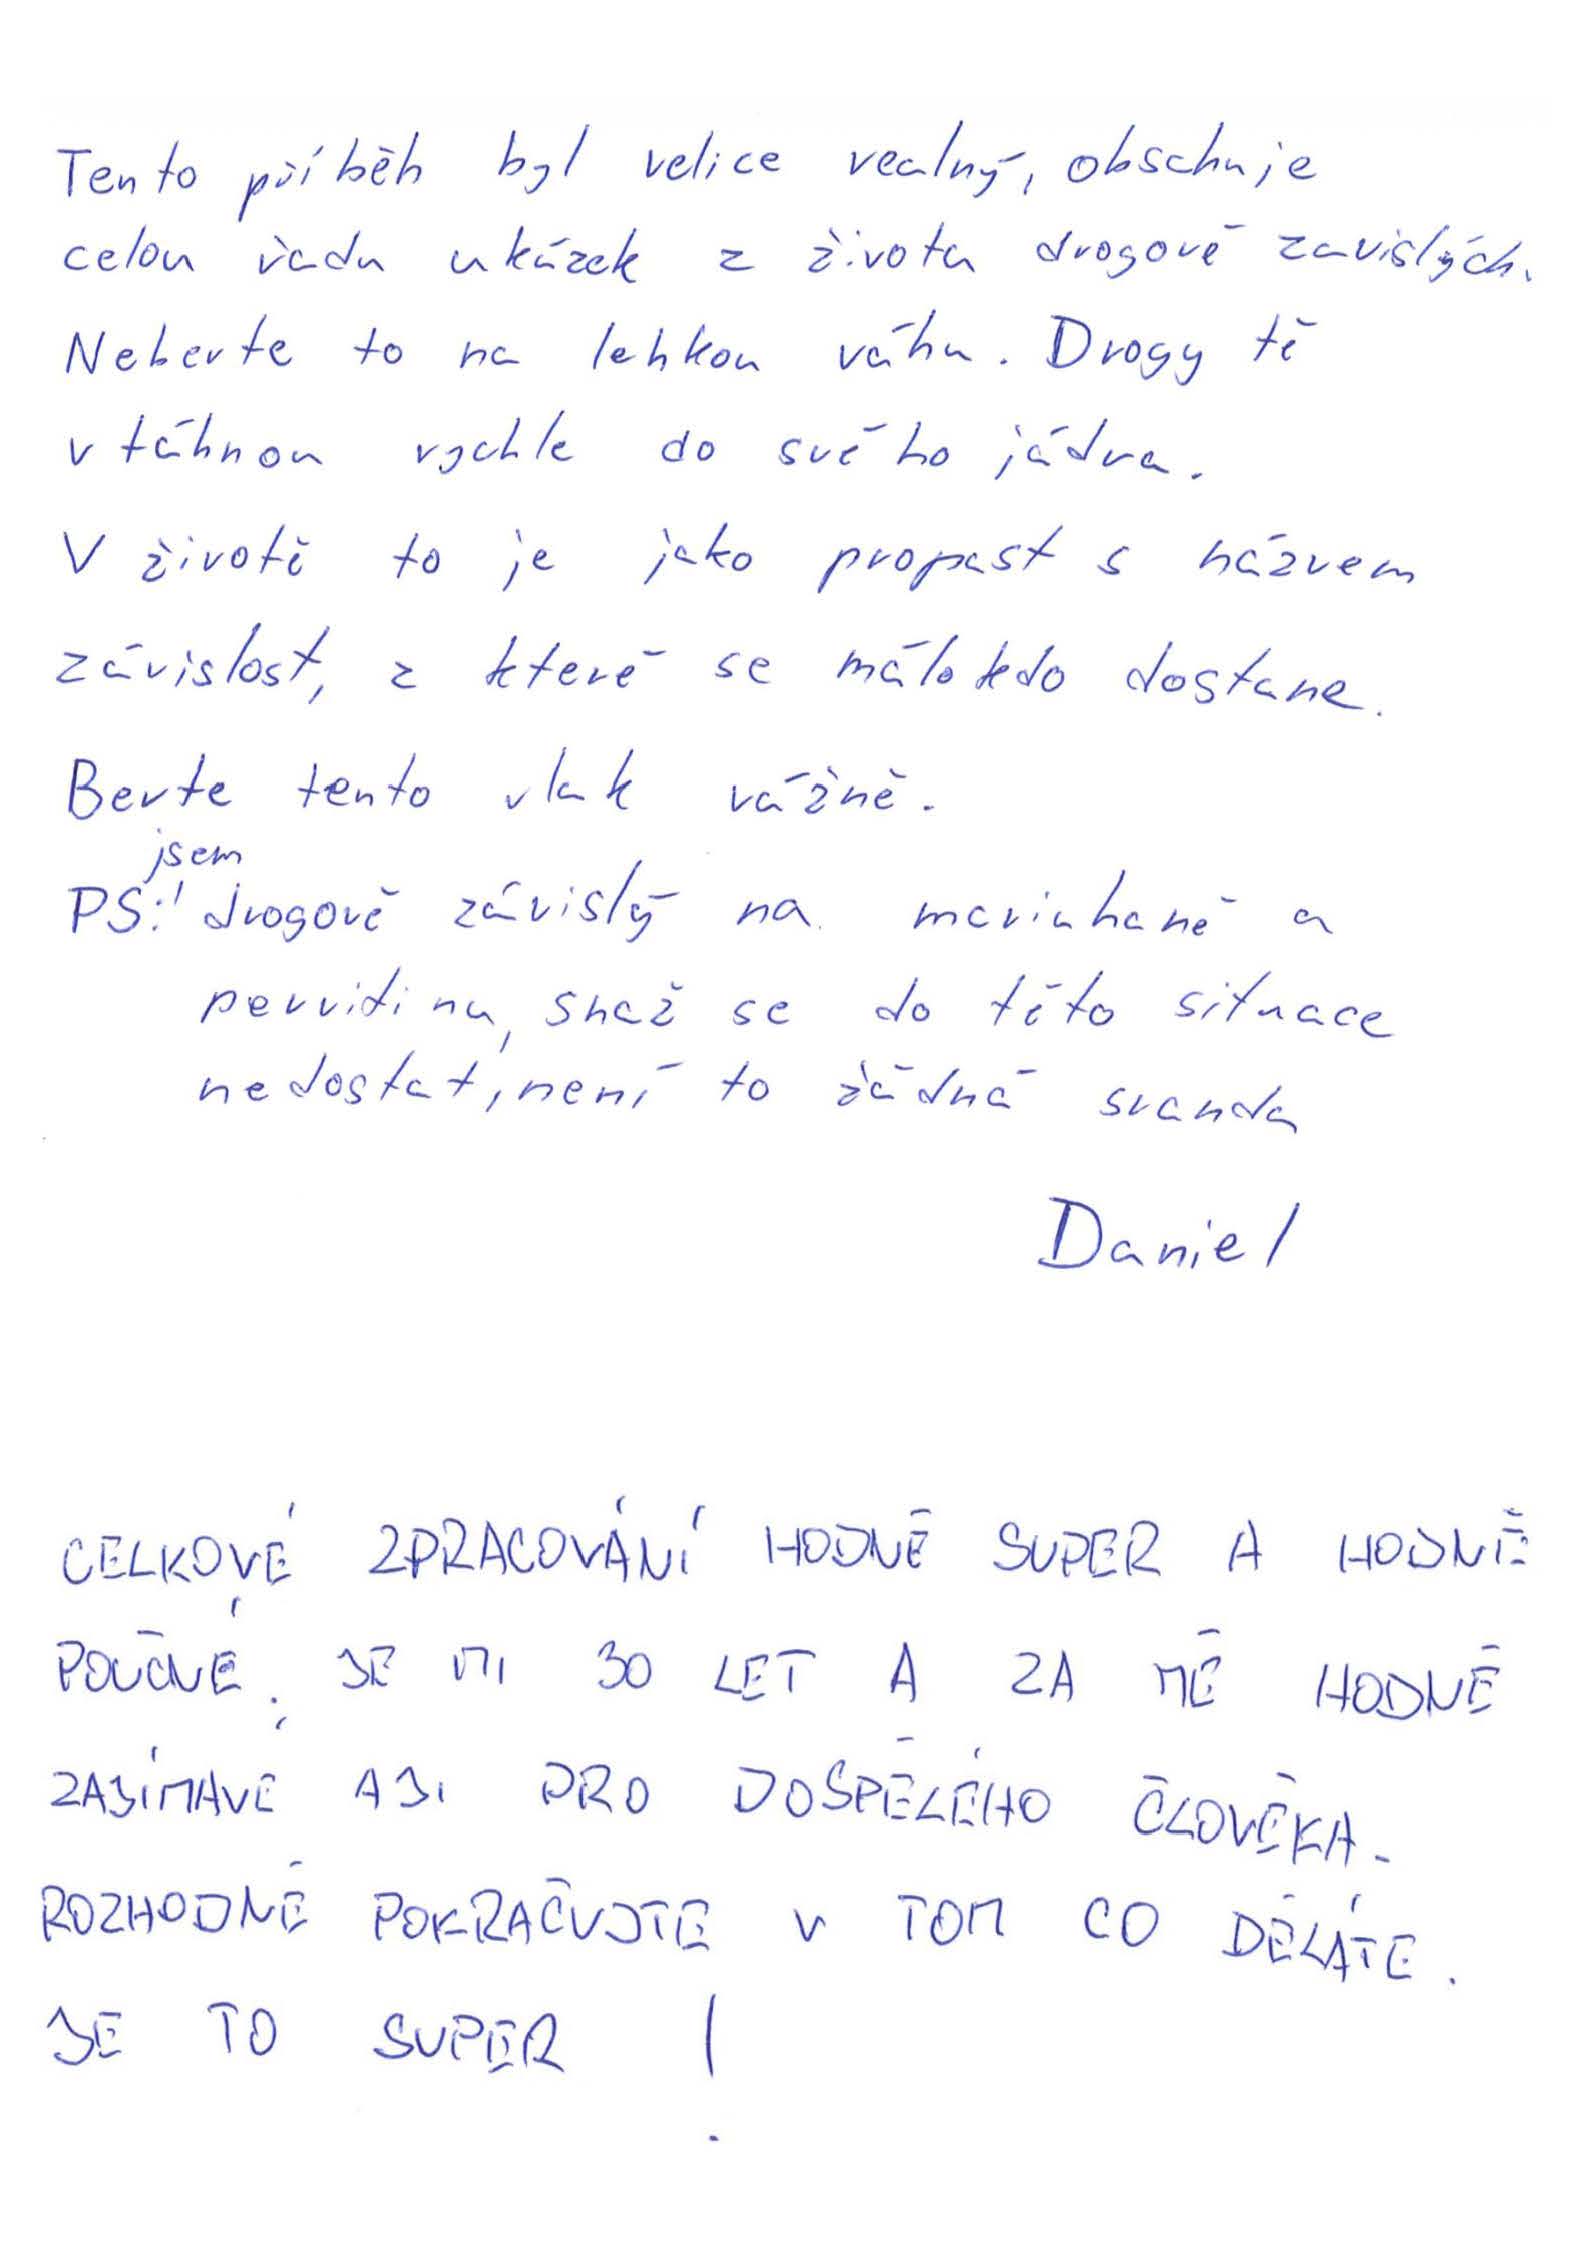 Tento příběh byl velice realný, obsahuje
celou řadu ukázek z života drogově zavislých.
Neberte to na lehkou váhu. Drogy tě
vtáhnou rychle do svého jádra.
V životě to je jako propast s názvem
závislost, z které se málokdo dostane.
Berte tento vlak vážně.
jsem
PS: drogově závislý na marihuaně a
pervitinu, snaž se do této situace
nedostat, není to žádná sranda
Daniel
CELKOVÉ ZPRACOVÁNÍ HODNĚ SUPER A HODNĚ
POUČNÉ. JE MI 30 LET A ZA MĚ HODNĚ
ZAJÍMAVÉ AJI PRO DOSPĚLÉHO ČLOVĚKA.
ROZHODNĚ POKRAČUJTE V TOM CO DĚLÁTE.
JE TO SUPER !